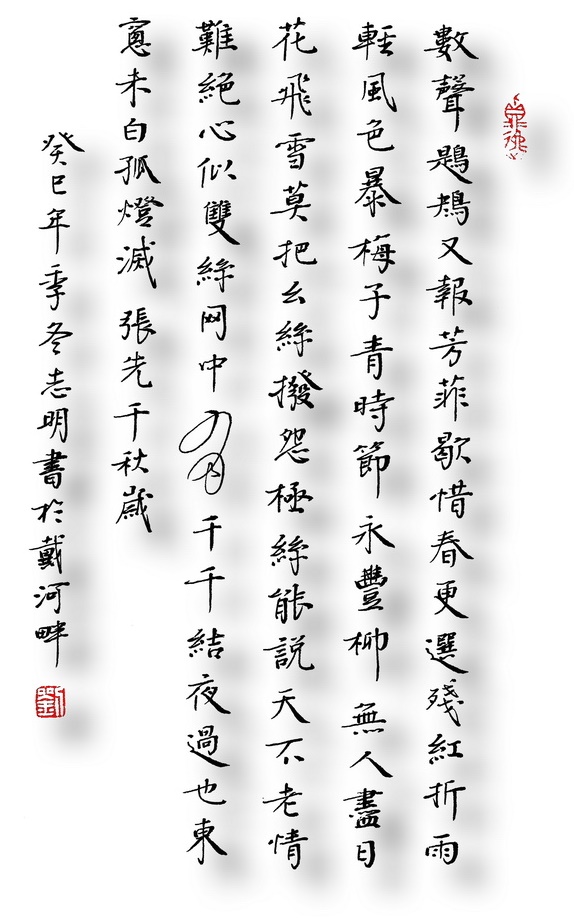 數聲鶗鴂又報芳菲歇惜春更選殘紅折雨
輕風色暴梅子青時節永豐柳無人盡日
花飛雪莫把幺絲撥怨極絲能説天不老情
難絕心似雙絲网中有千千結夜過也東
窻未白孤燈滅 張先千秋歲
癸巳年季冬志明書於戴河畔
劉